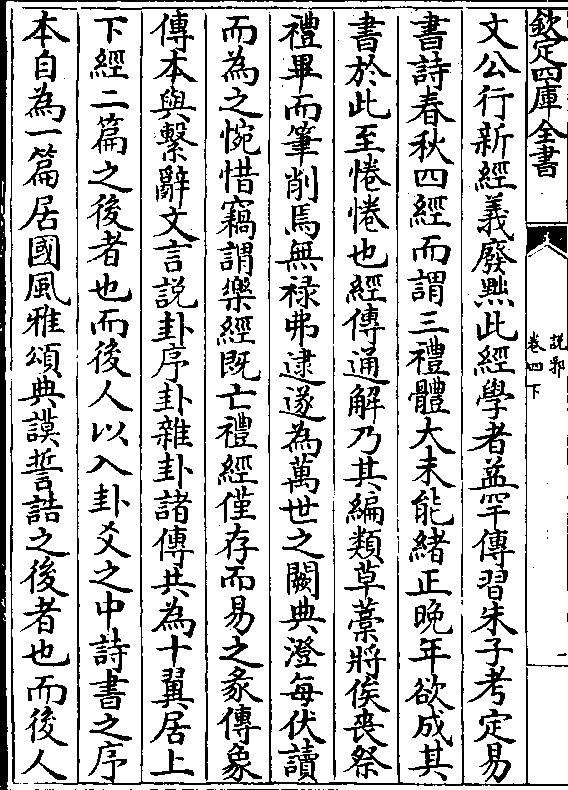 欽定四庫全書
說郛
卷四下
一
文公行新經義廢黜此經學者益罕傳習朱子考定易
書詩春秋四經而謂三禮體大未能緒正晚年欲成其
書於此至惓惓也經傳通解乃其編類草藳將俟喪祭
禮畢而筆削焉無禄弗逮遂為萬世之闕典澄每伏讀
而為之惋惜竊謂樂經既亡禮經僅存而易之彖傳象
傳本與繫辭文言說卦序卦雜卦諸傳共為十翼居上
下經二篇之後者也而後人以入卦爻之中詩書之序
本自為一篇居國風雅頌典謨誓誥之後者也而後人